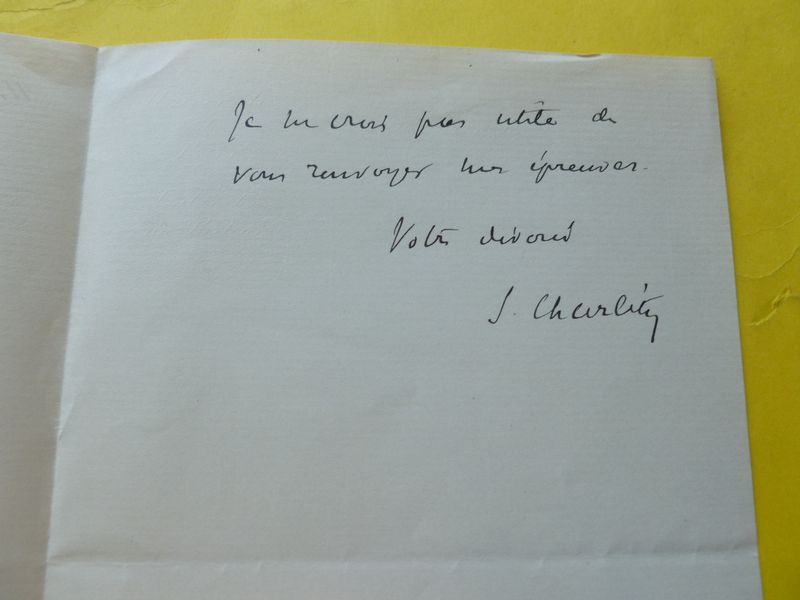 Je ne crois pas utile de
vous renvoyer mes épreuves.
Votre dévoué
S. Charléty